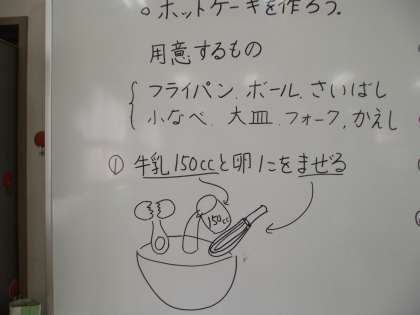 ○ ホットケーキを作ろう.
用意するもの
フライパン.ボール.さいばし
小なべ、大皿.フォーク.かえし
① 牛乳150ccと卵1こをまぜる
150cc